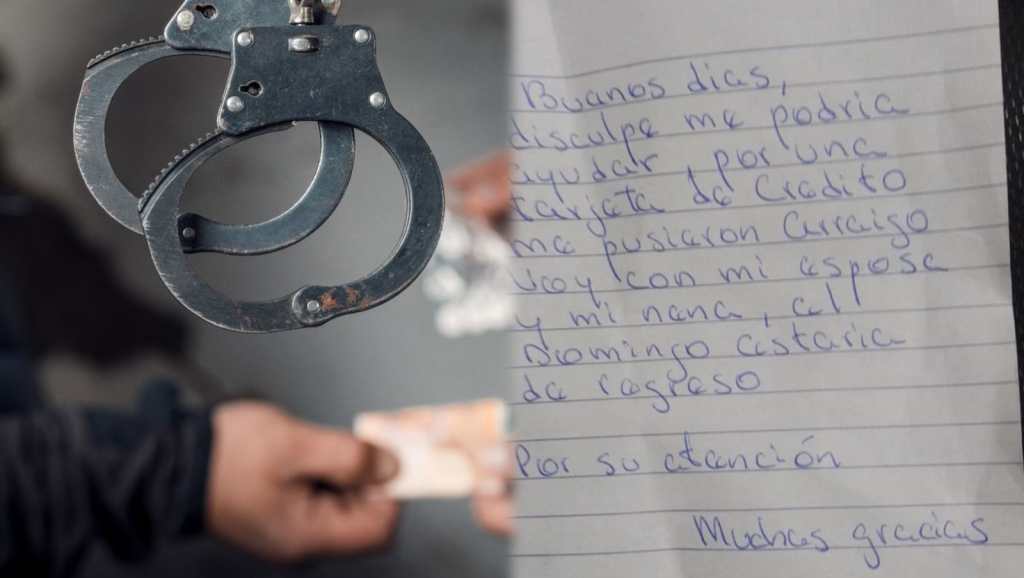 Buenos dias,
disculpe me podria
ayudar, por una
tarjeta de Credito
me pusieron Arraigo
Voy con mi esposa
y mi nena, el
Domingo estaria
de regreso
Por su atención
Muchas gracias